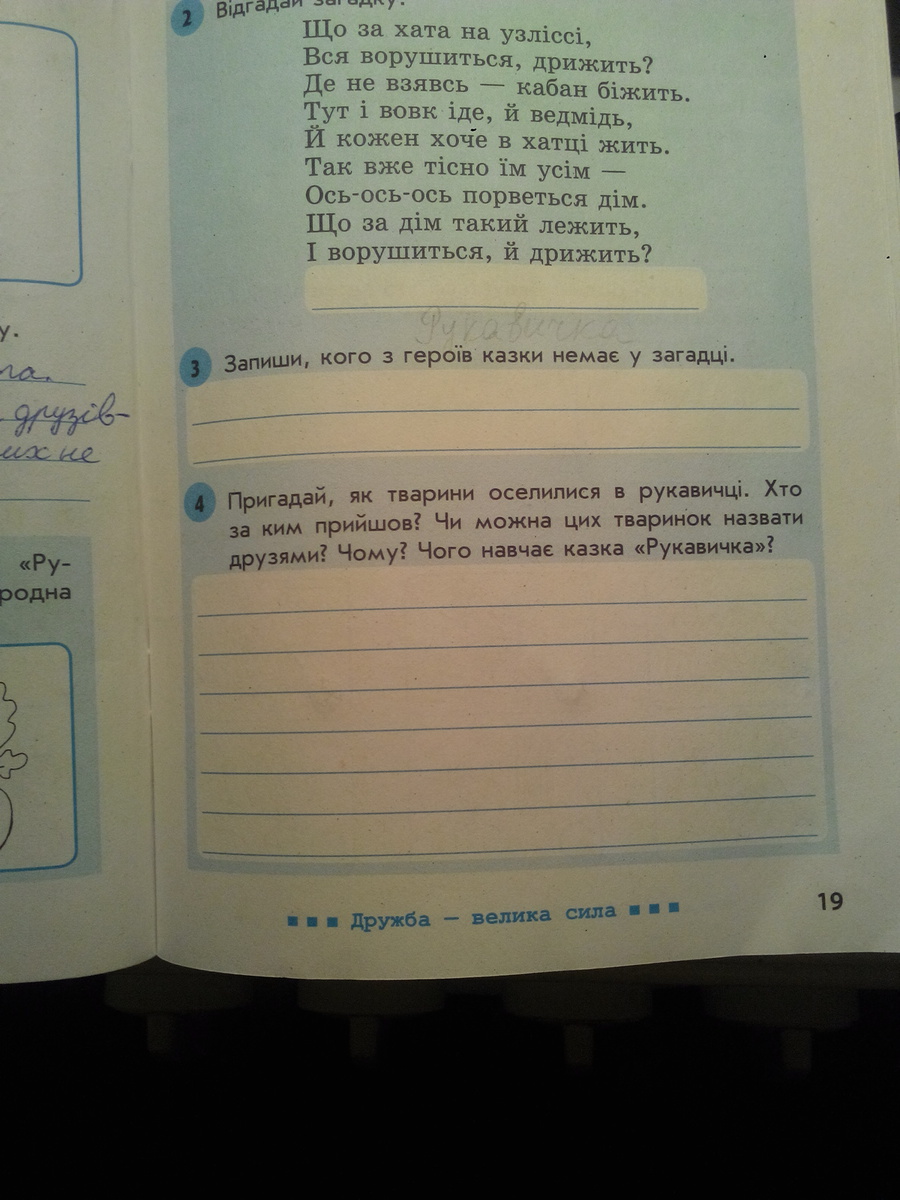 у.
друзів-
их не
«Ру-
родна
2 Відгадай загадку.
Що за хата на узліссі,
Вся ворушиться, дрижить?
Де не взявсь — кабан біжить.
Тут і вовк іде, й ведмідь,
Й кожен хоче в хатці жить.
Так вже тісно їм усім —
Ось-ось-ось порветься дім.
Що за дім такий лежить,
І ворушиться, й дрижить?
Рукавичка
3 Запиши, кого з героїв казки немає у загадці.
4 Пригадай, як тварини оселилися в рукавичці. Хто
за ким прийшов? Чи можна цих тваринок назвати
друзями? Чому? Чого навчає казка «Рукавичка»?
Дружба — велика сила
19